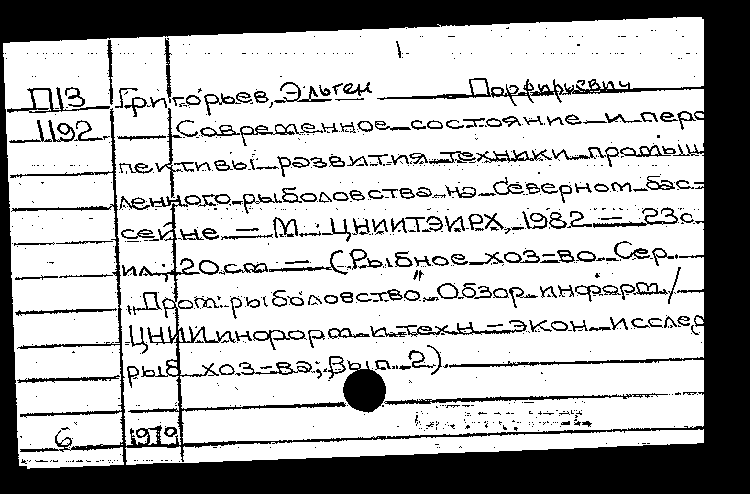 П13 Григорьев, Эльген Порфирьевич
1192 Современное состояние и перс
пективы развития техники промыш
ленного рыболовства на Северном бас-
сейне. — М.: ЦНИИТЭИРХ, 1982 — 23с.
ил.; 20 cm — (Рыбное хоз-во. Сер.
„Пром. рыболовство“. Обзор. информ/
ЦНИИ информ и техн-экон. исслед
рыб хоз-ва; Вып. 2)
6 1979